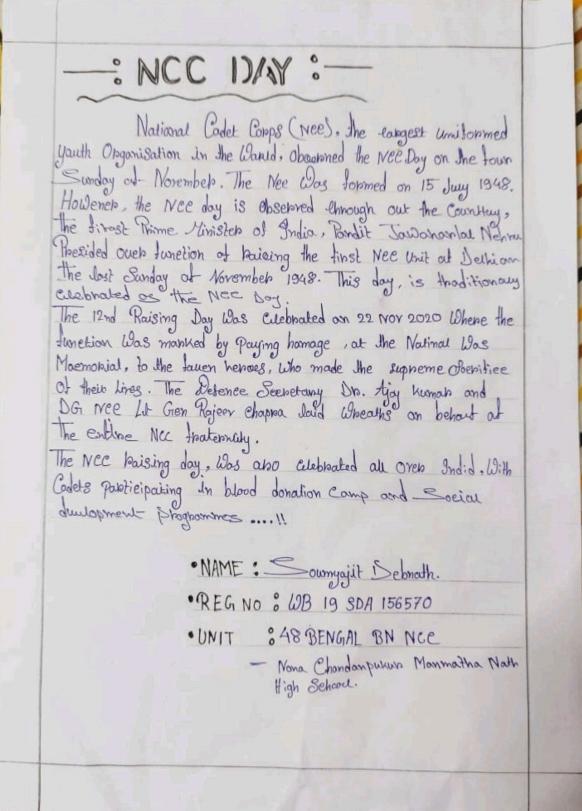 —: NCC DAY :—
National Cadet Corps (NCC), the largest uniformed
youth Organisation in the World, observed the NCC Day on the
Sunday of November. The Ncc Was formed on 15 July 1948.
However, the NCC day is observed through out the Country,
the first Prime Minister of India, Pandit Jawaharlal Nehru
Presided over function of Raising the first NCC Unit at Delhi on
the last Sunday of November 1948. This day, is traditionaly
celebrated as the NCC Day.
The 72nd Raising Day Was Celebrated on 22 Nov 2020 Where the
function Was marked by Paying homage, at the National Was
Maemorial, to the fallen heroes, who made the supreme
of their lives. The Defence Secretary Dr. Ajay Kumar and
DG NCC Lt Gen Rajeev Chopra laid Wreaths on behalf of
the entire NCC fraternity.
The NCC Raising day, Was also Celebrated all over Indid, With
Cadets Participating in blood donation Camp and Social
development Programmes ....!!
•NAME : Soumyajit Debnath.
•REG NO : WB 19 SDA 156570
•UNIT : 48 BENGAL BN NCC
— Nona Chandanpukur Manmatha Nath
High School.